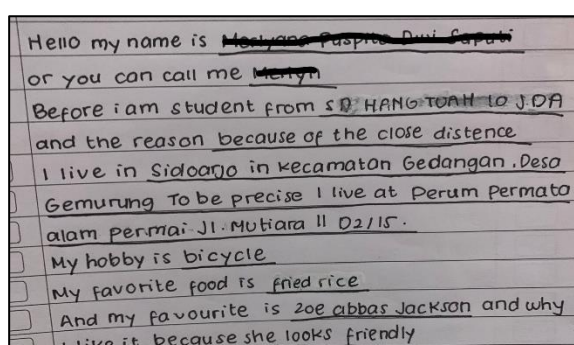 Hello my name is
or you can call me
Before i am student from SD HANG TUAH 10 J.DA
and the reason because of the close distence
I live in Sidoarjo in kecamatan Gedangan. Desa
Gemurung To be precise I live at Perum Permata
alam permai Jl. Mutiara II D2/15.
My hobby is bicycle
My favorite food is fried rice
And my favourite is zoe abbas Jackson and why
I like it because she looks friendly